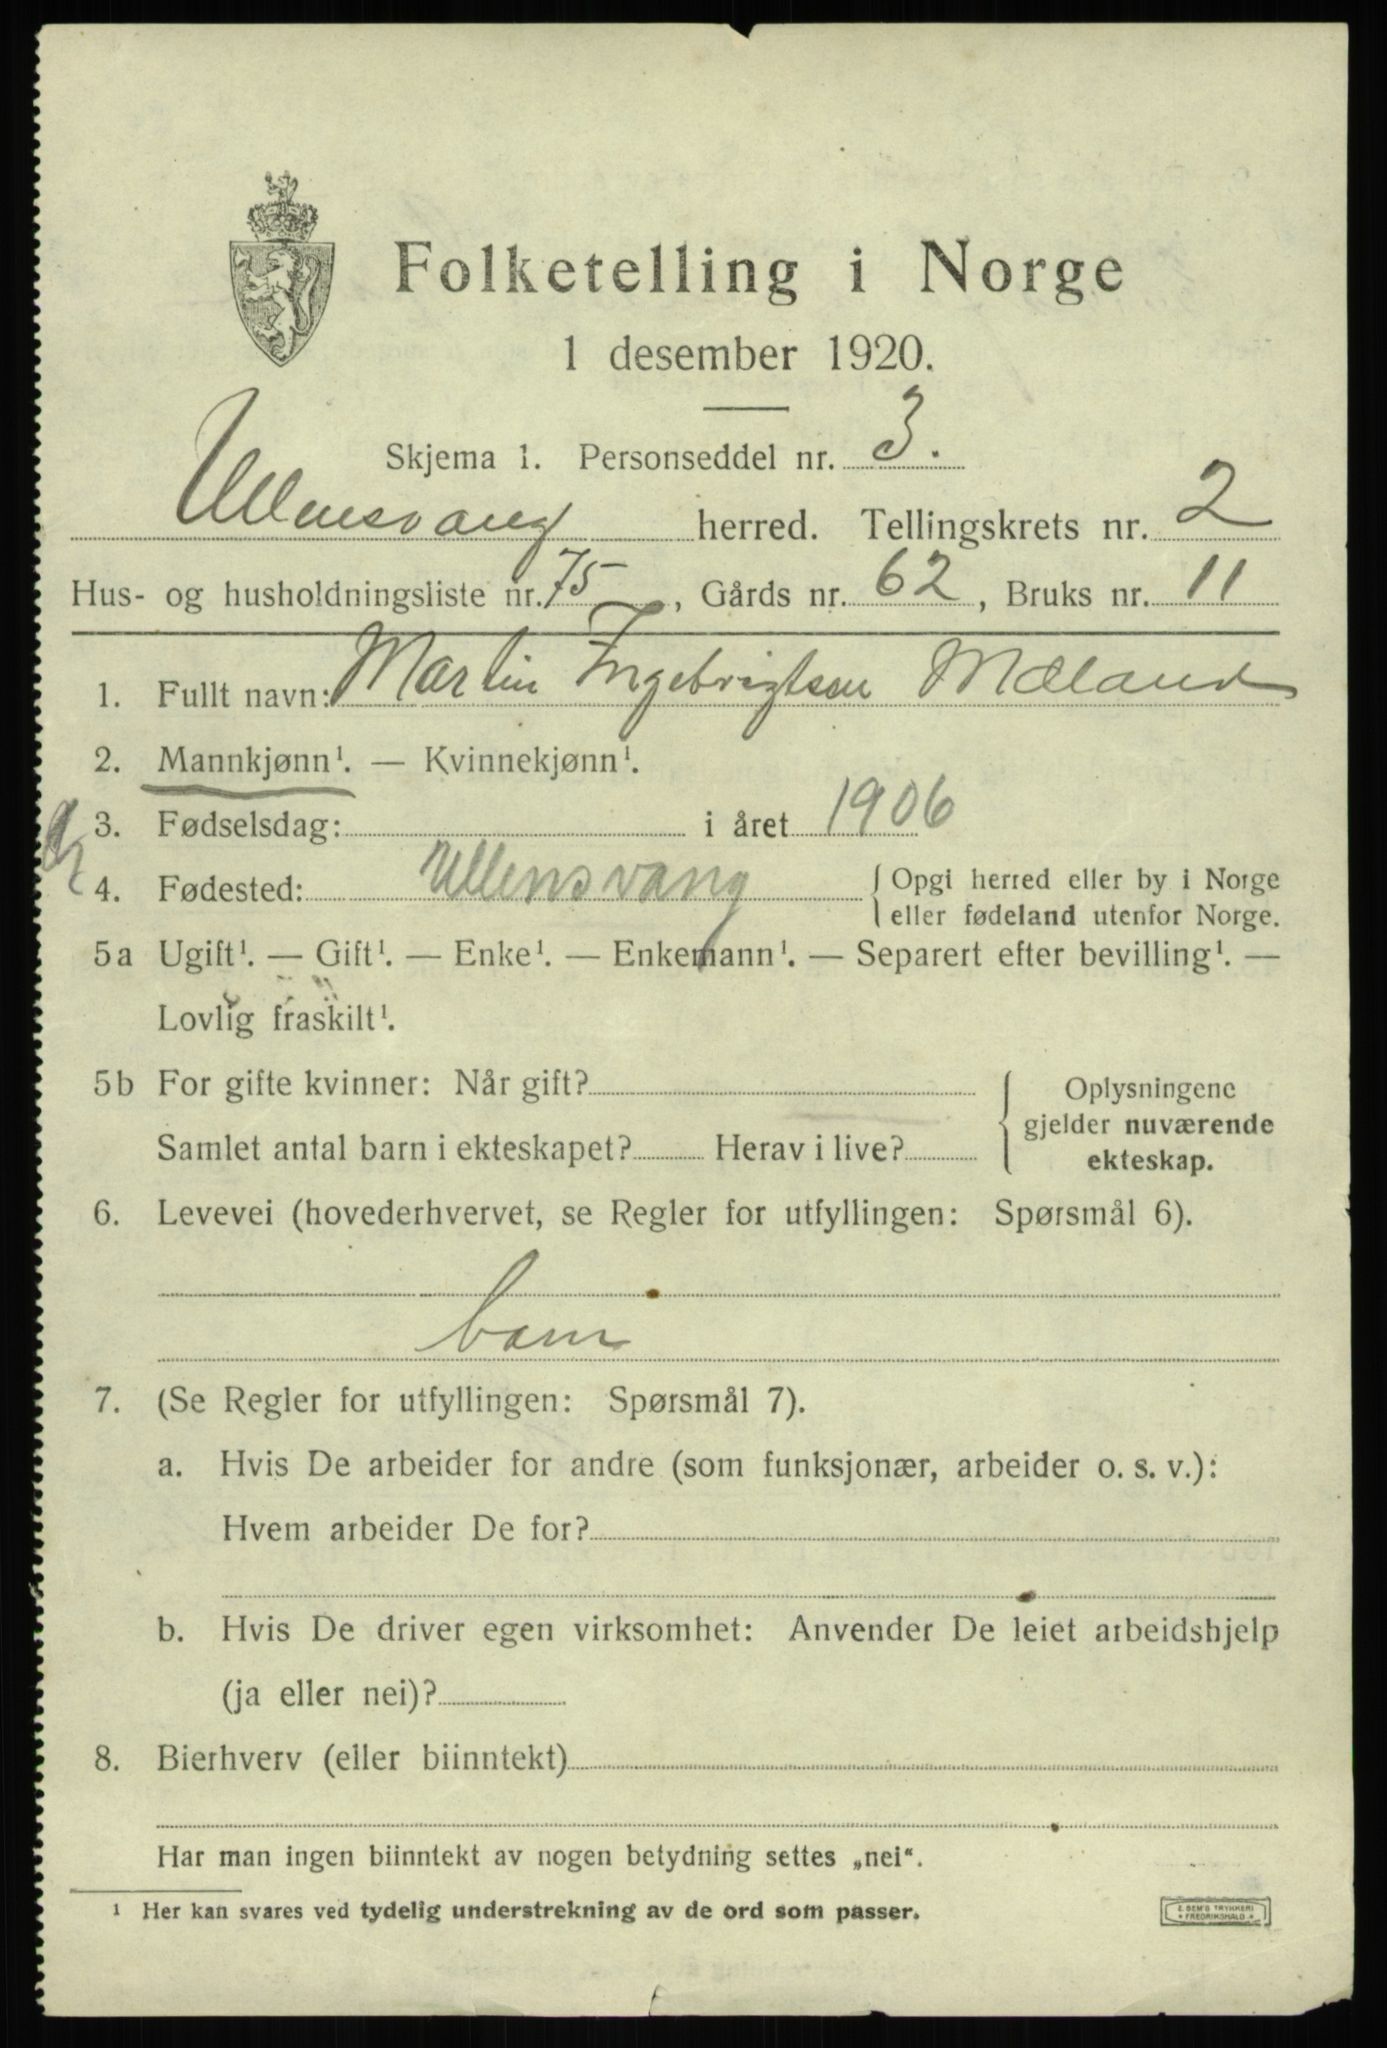 Folketelling i Norge
1 desember 1920.
Skjema 1. Personseddel nr. 3.
Ullensvang herred. Tellingskrets nr. 2
Hus- og husholdningsliste nr. 75, Gårds nr. 62, Bruks nr. 11
1. Fullt navn: Martin Ingebrigtsen Mæland
2. Mannkjønn¹. — Kvinnekjønn¹.
3. Fødselsdag: i året 1906
4. Fødested: Ullensvang { Opgi herred eller by i Norge
eller fødeland utenfor Norge.
5a Ugift¹. — Gift¹. — Enke¹. — Enkemann¹. — Separert efter bevilling¹. —
Lovlig fraskilt¹.
5b For gifte kvinner: Når gift?
Samlet antal barn i ekteskapet? Herav i live?
Oplysningene
gjelder nuværende
ekteskap.
6. Levevei (hovederhvervet, se Regler for utfyllingen: Spørsmål 6).
barn
7. (Se Regler for utfyllingen: Spørsmål 7).
a. Hvis De arbeider for andre (som funksjonær, arbeider o. s. v.):
Hvem arbeider De for?
b. Hvis De driver egen virksomhet: Anvender De leiet arbeidshjelp
(ja eller nei)?
8. Bierhverv (eller biinntekt)
Har man ingen biinntekt av nogen betydning settes „nei“.
¹ Her kan svares ved tydelig understrekning av de ord som passer.
E. SEM'S TRYKKERI
FREDRIKSHALD